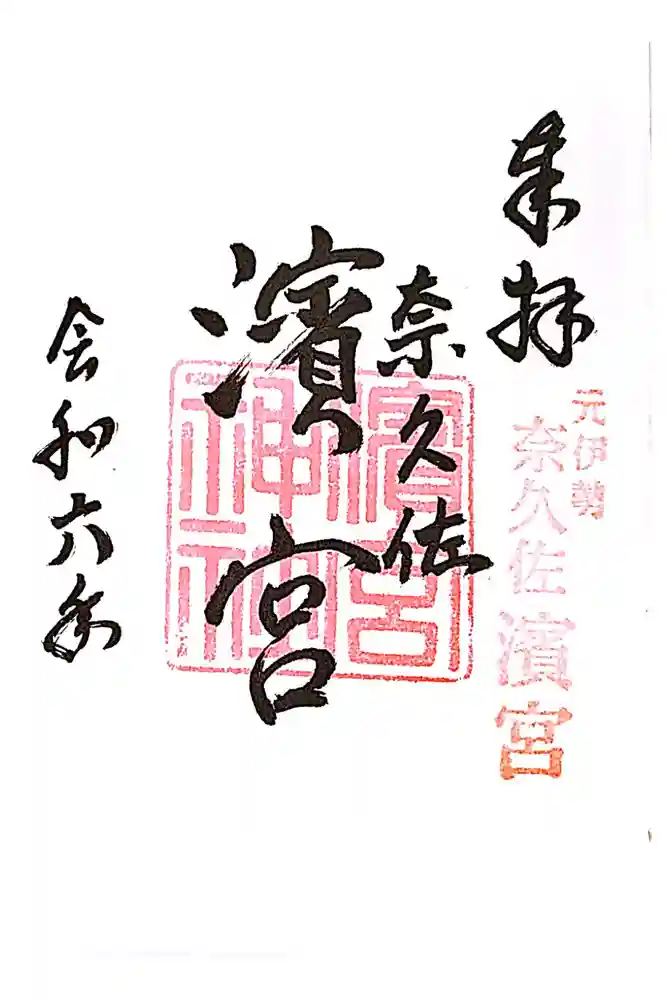 奉拝
元伊勢
奈久佐濱宮
奈久佐
濱宮
濱宮
神社
令和六年